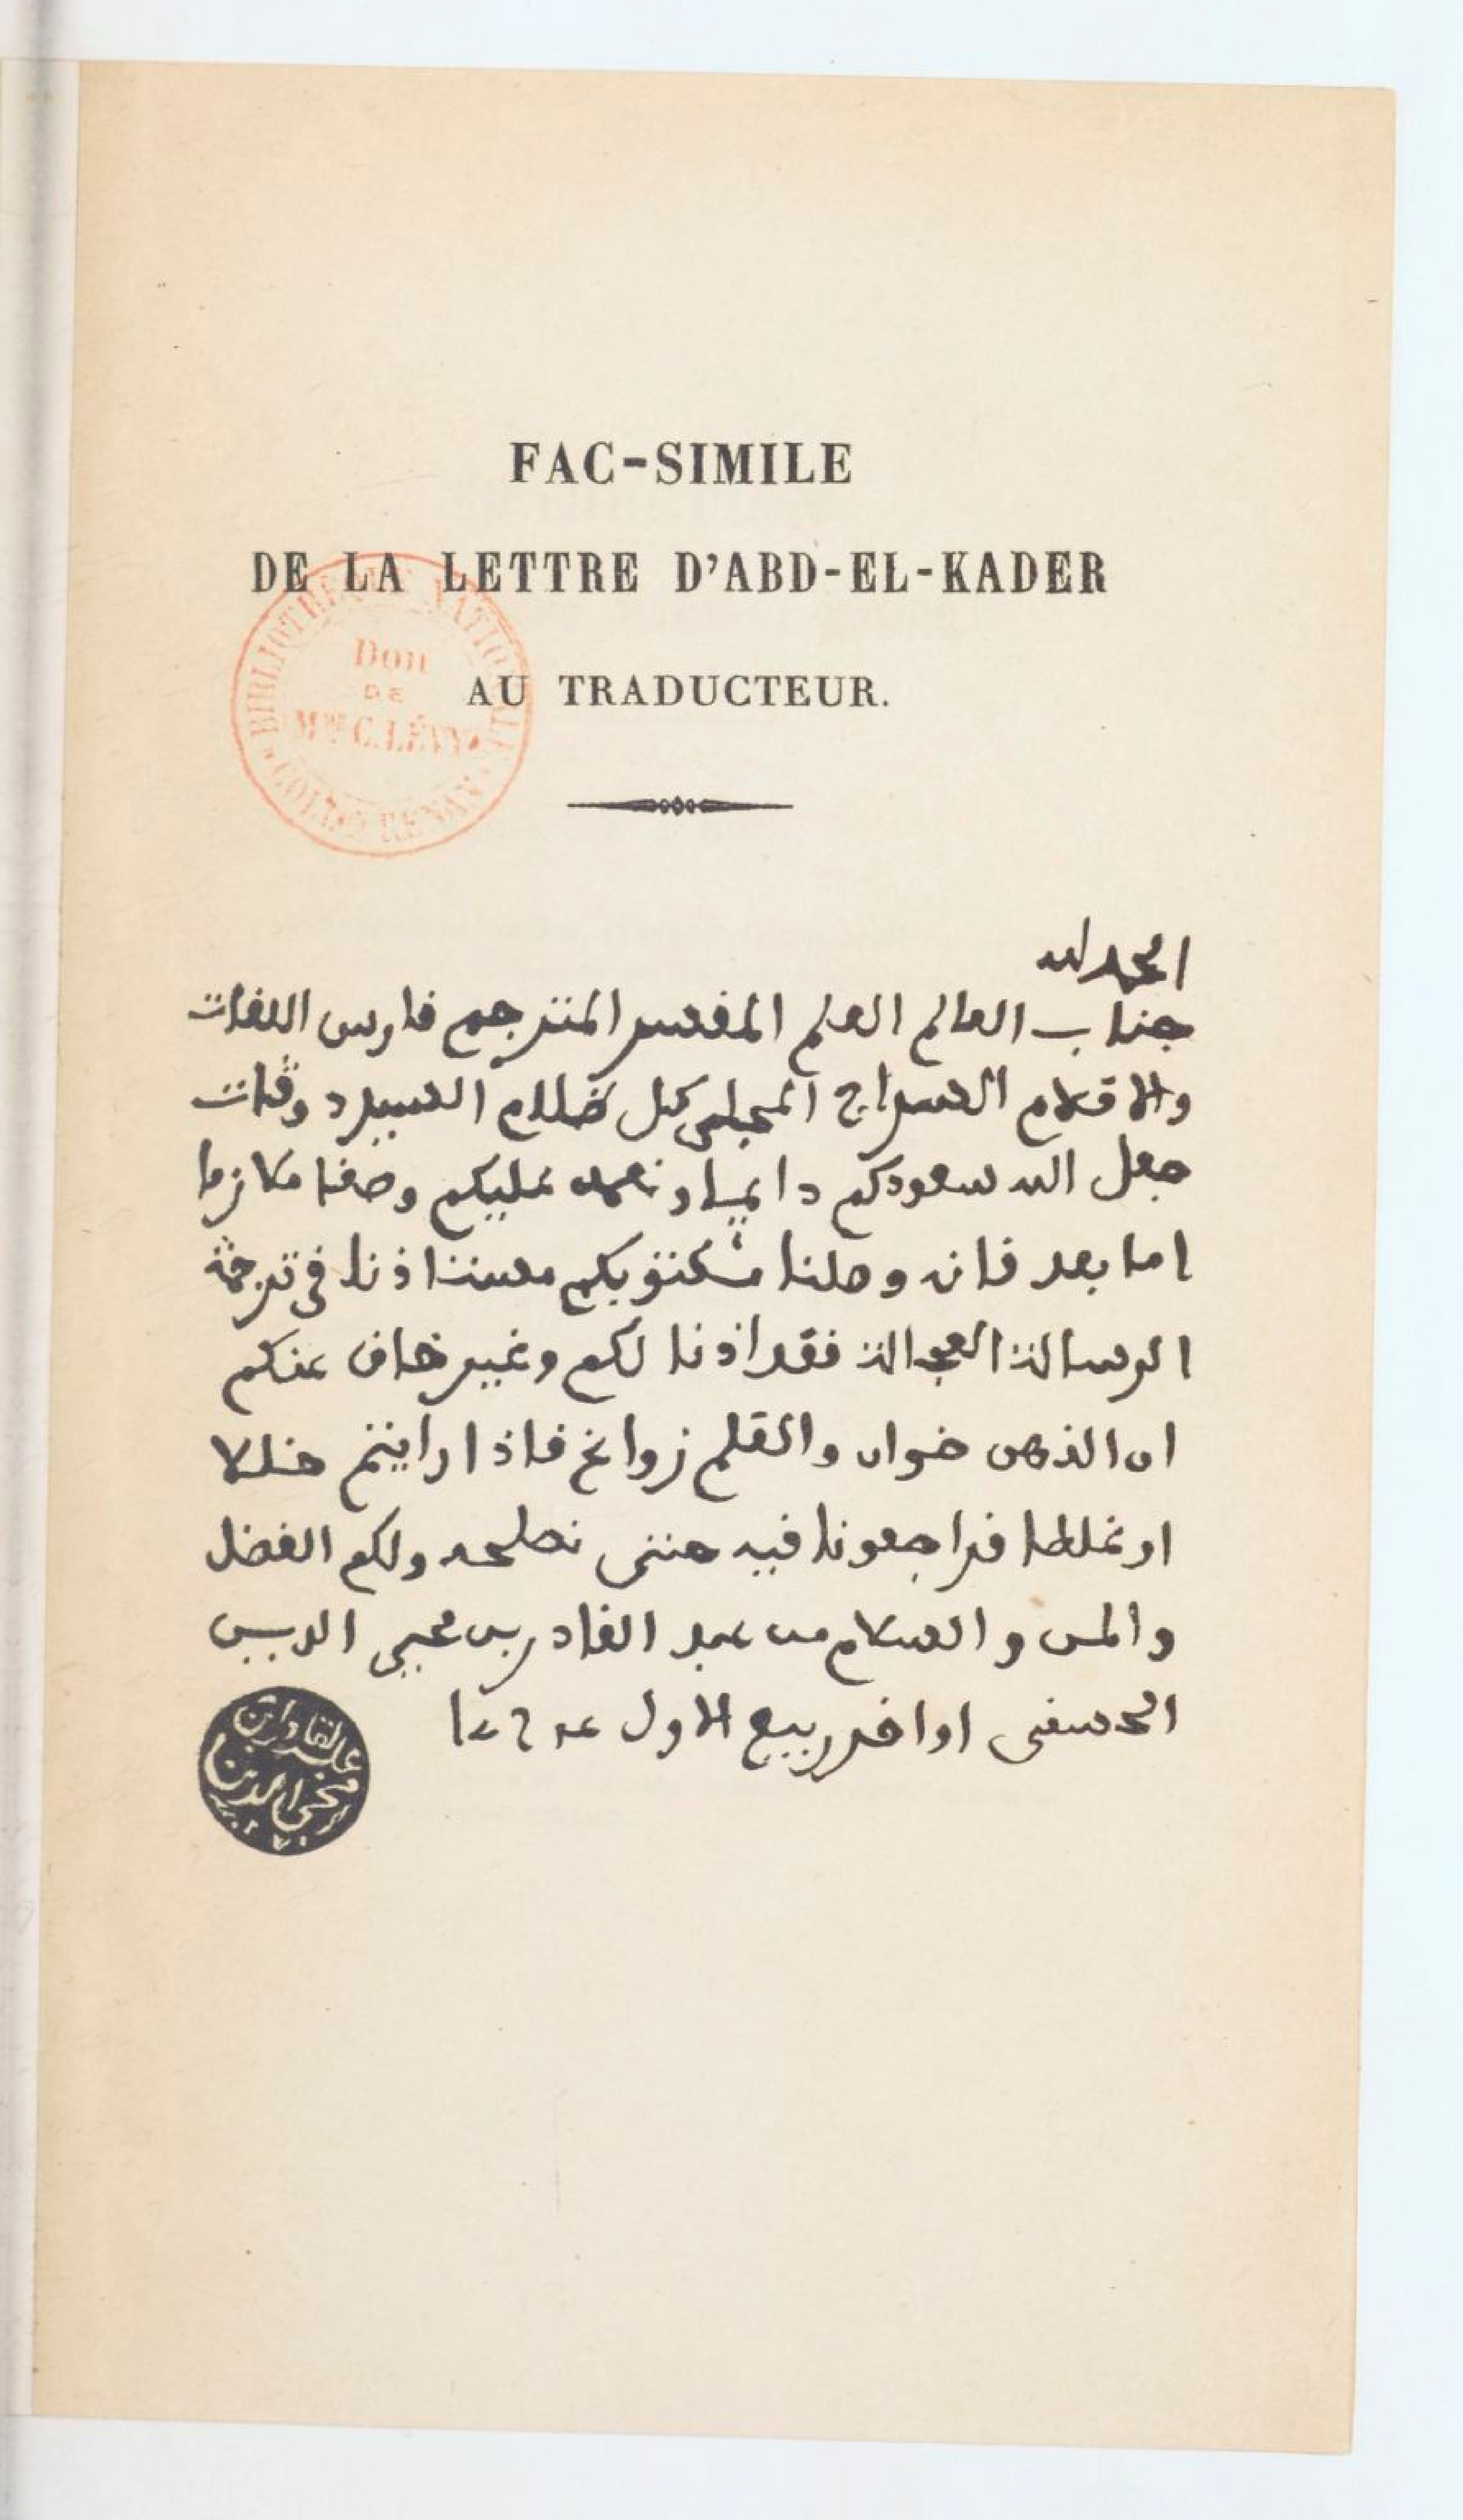 FAC-SIMILE
DE LA LETTRE D'ABD-EL-KADER
AU TRADUCTEUR.
BIBLIOTHEQUE NATIONALE
Don
DE
Mme C. LÉVY
COLLon RENAN
الحمد لله
جناب العالم العلم المفسر المترجم فارس اللغات
والاقلام السراج المجلى كل ظلام السيد
جعل الله سعودكم دايما ونعمه عليكم وصفا لازما
اما بعد فانه وصلنا مكتوبكم مستاذنا في ترجمة
الرسالة العجالة فقد اذنا لكم وغير خاف عنكم
ان الذهن خوان والقلم زوانح فاذا رايتم خللا
او غلطا فراجعونا فيه حتى نصلحه ولكم الفضل
والمن والسلام من عبد القادر بن محيي الدين
الحسني اواخر ربيع الاول
عبد القادر بن
محي الدين